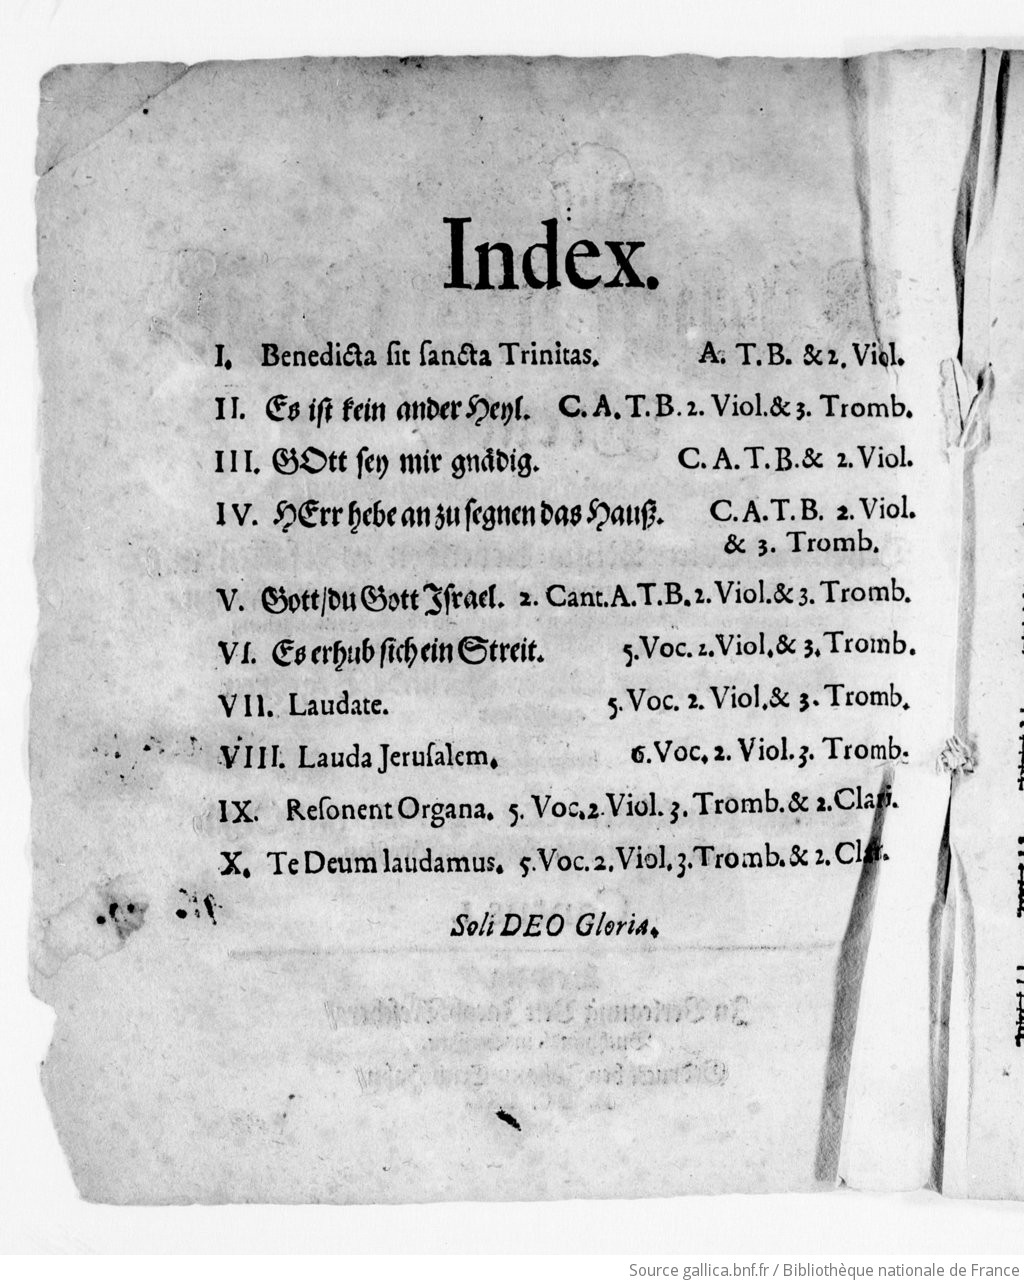 Index.
I. Benedicta ſit ſancta Trinitas. A. T. B. & 2. Viol.
II. Es iſt kein ander Heyl. C. A. T. B. 2. Viol. & 3. Tromb.
III. GOtt ſey mir gnädig. C. A. T. B. & 2. Viol.
IV. HErr hebe an zu ſegnen das Hauß. C. A. T. B. 2. Viol.
& 3. Tromb.
V. Gott/ du Gott Iſrael. 2. Cant. A. T. B. 2. Viol. & 3. Tromb.
VI. Es erhub ſich ein Streit. 5. Voc. 2. Viol. & 3. Tromb.
VII. Laudate. 5. Voc. 2. Viol. & 3. Tromb.
VIII. Lauda Jeruſalem. 6. Voc. 2. Viol. 3. Tromb.
IX. Reſonent Organa. 5. Voc. 2. Viol. 3. Tromb. & 2. Clari.
X. Te Deum laudamus. 5. Voc. 2. Viol. 3. Tromb. & 2.
Soli DEO Gloria.
Source gallica.bnf.fr / Bibliothèque nationale de France